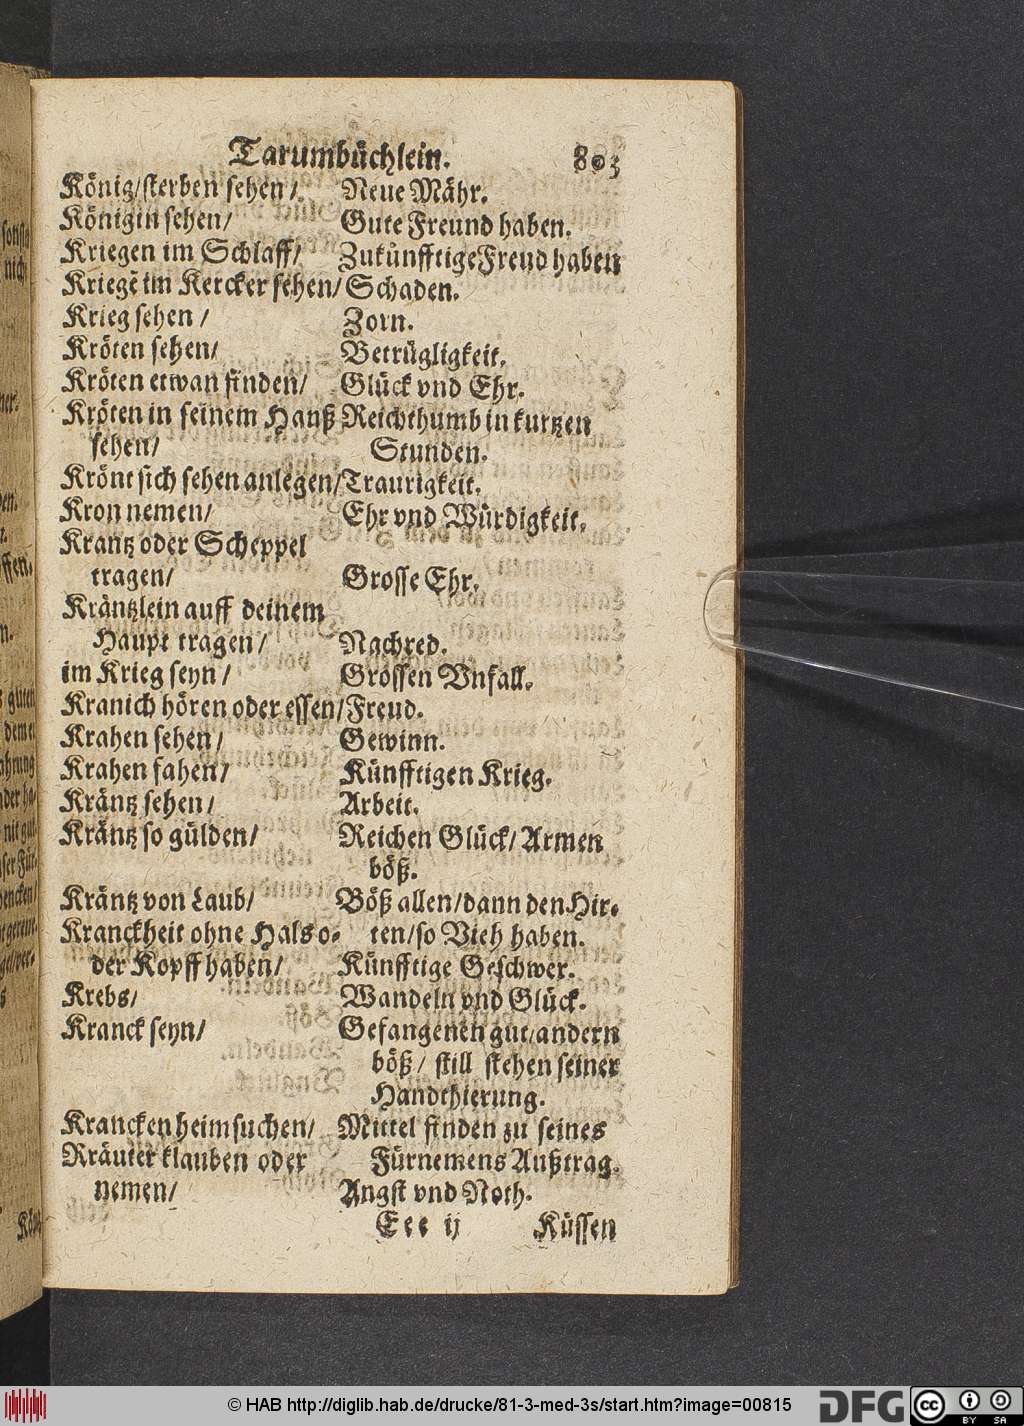 Tarumbüchlein. 803
König/sterben sehen/. Neue Mähr.
Königin sehen/ Gute Freund haben.
Kriegen im Schlaff/ Zukünfftige Freud haben
Kriegẽ im Kercker sehen/ Schaden.
Krieg sehen / Zorn.
Kröten sehen/ Betrügligkeit.
Kröten etwan finden/ Glück vnd Ehr.
Kröten in seinem Hauß Reichthumb in kurtzen
sehen/ Stunden.
Krönt sich sehen anlegen/ Traurigkeit.
Kron nemen/ Ehr vnd Würdigkeit.
Krantz oder Scheppel
tragen/ Grosse Ehr.
Kräntzlein auff deinem
Haupt tragen/ Nachred.
im Krieg seyn/ Grossen Vnfall.
Kranich hören oder essen/ Freud.
Krahen sehen/ Gewinn.
Krahen fahen/ Künfftigen Krieg.
Kräntz sehen/ Arbeit.
Kräntz so gülden/ Reichen Glück/ Armen
böß.
Kräntz von Laub/ Böß allen/dann den Hir-
Kranckheit ohne Hals o- ten/so Vieh haben.
der Kopff haben/ Künfftige Geschwer.
Krebs/ Wandeln vnd Glück.
Kranck seyn/ Gefangenen gut/andern
böß/ still stehen seiner
Handthierung.
Krancken heimsuchen/ Mittel finden zu seines
Kräuter klauben oder Fürnemens Außtrag.
nemen/ Angst vnd Noth.
Eee ij Küssen
© HAB http://diglib.hab.de/drucke/81-3-med-3s/start.htm?image=00815
DFG
cc BY SA